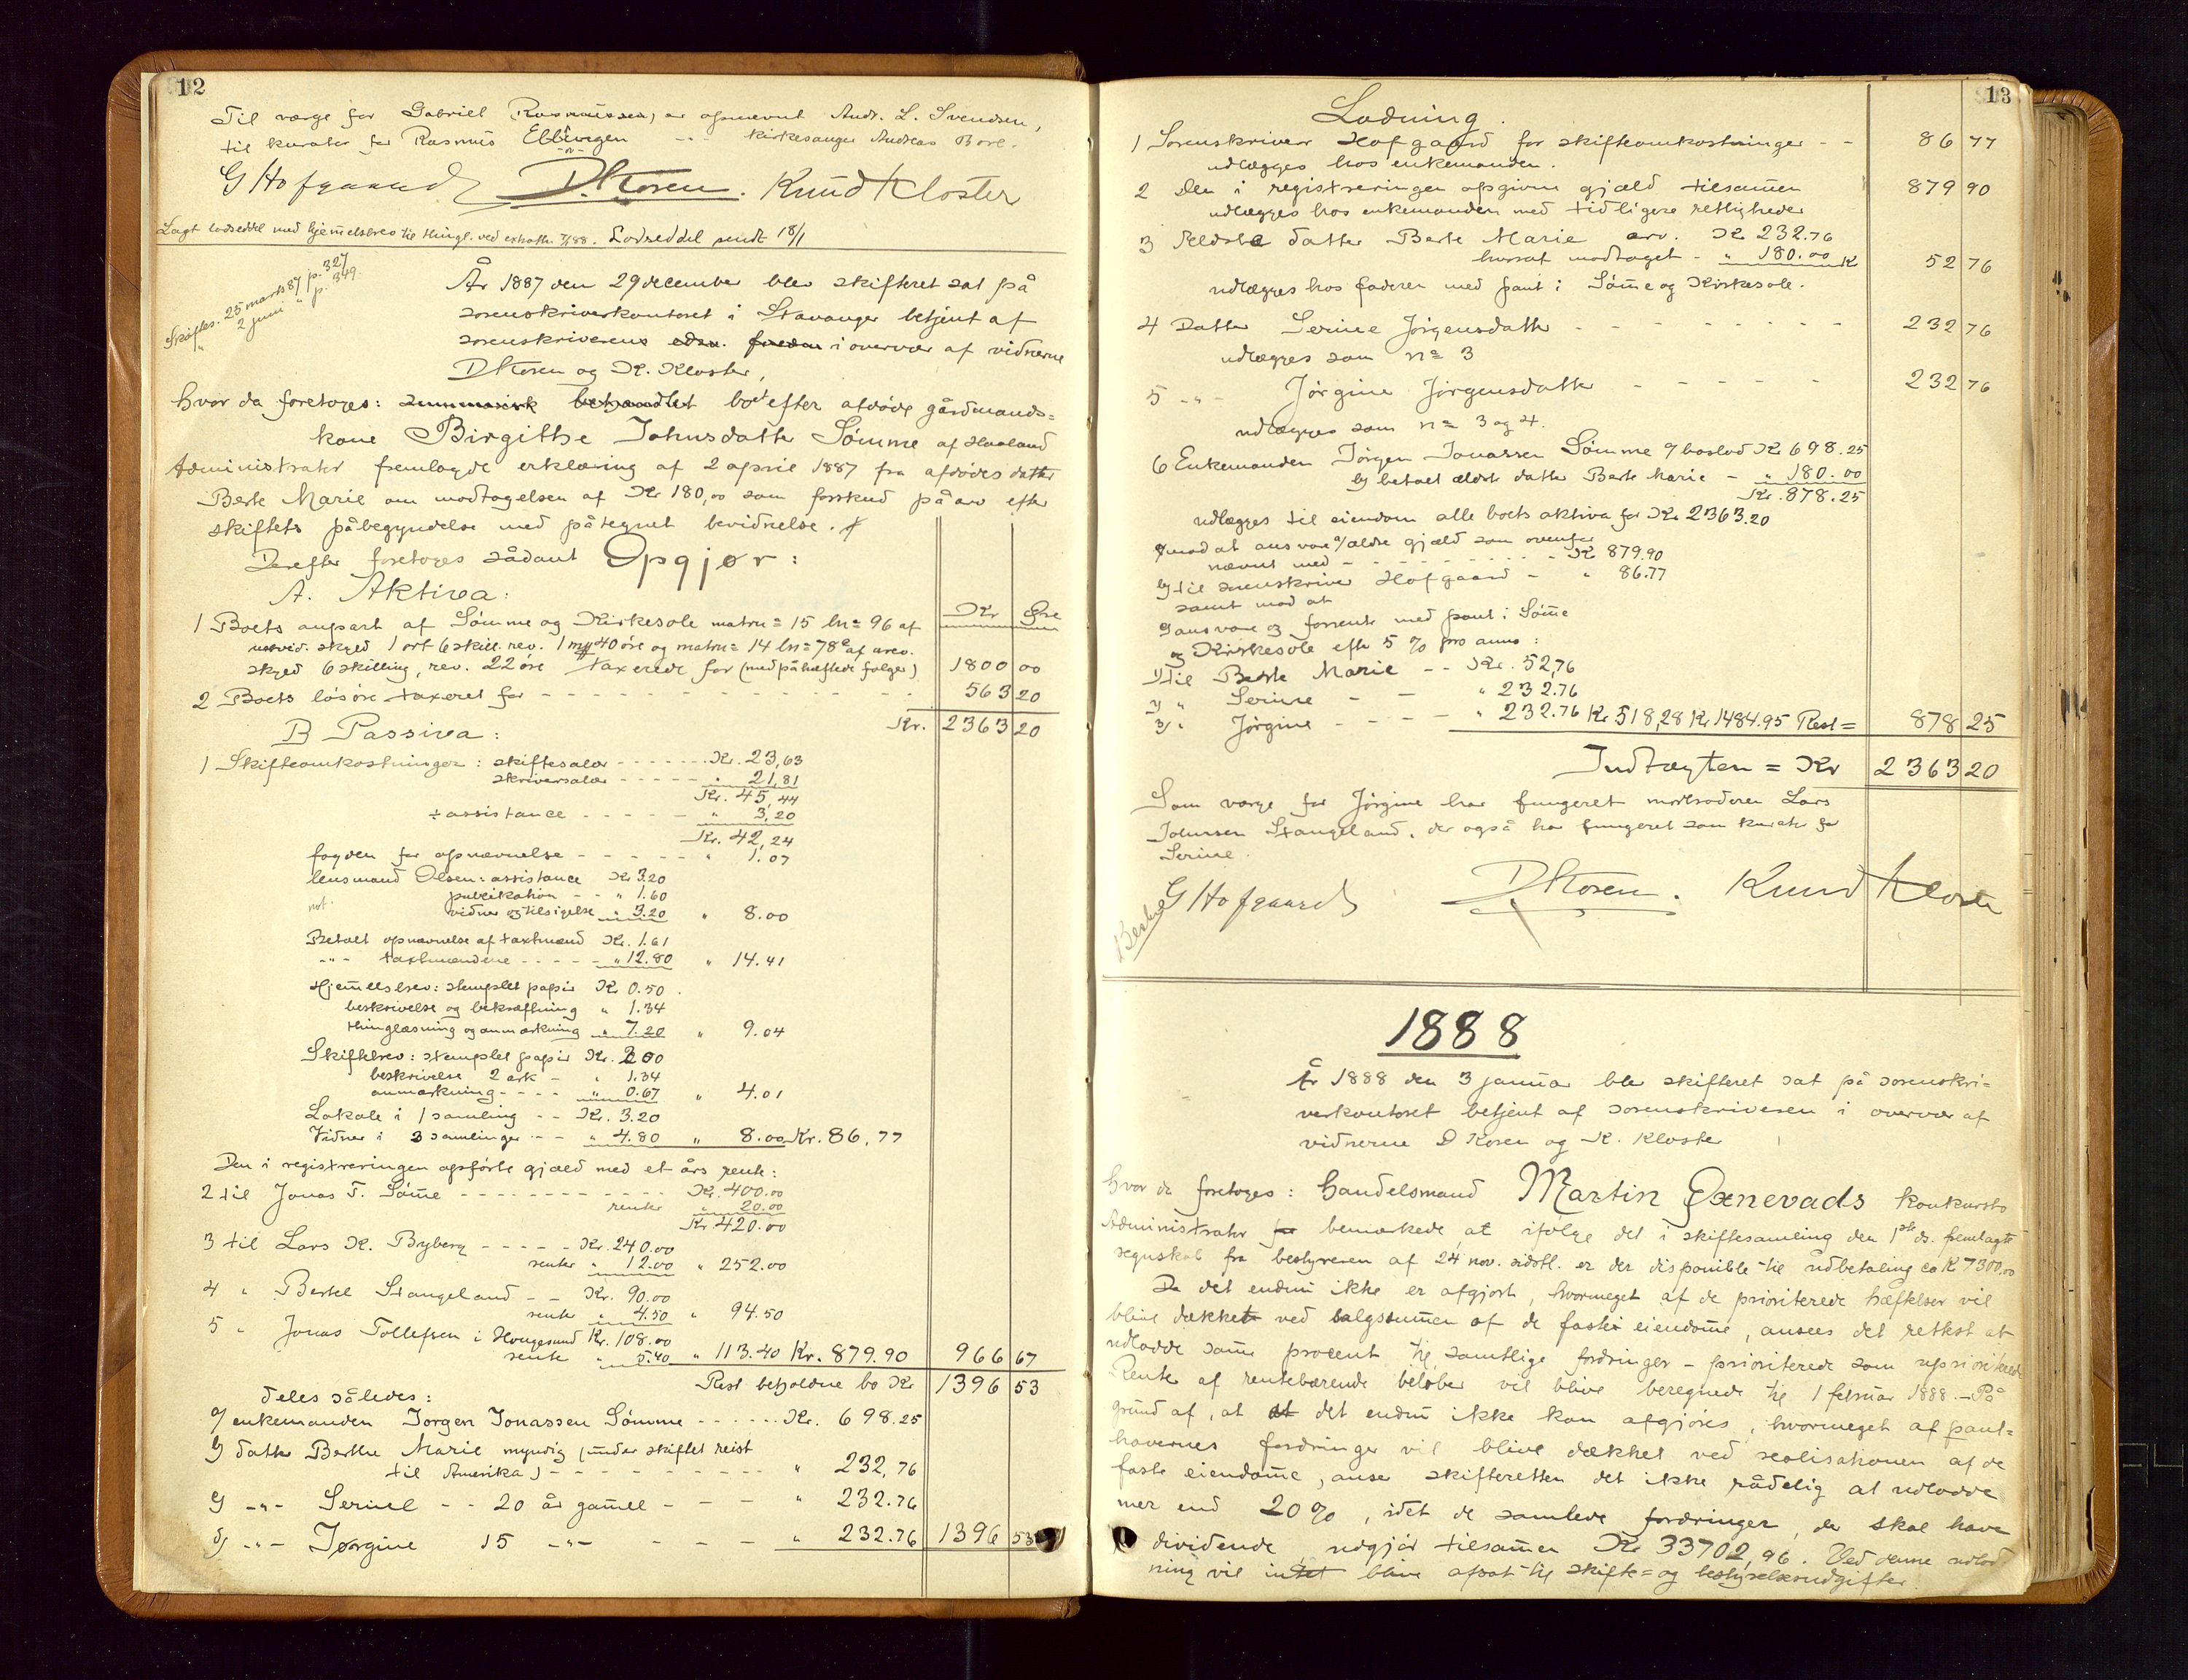 12
Til værge for Gabriel Rasmussen, er opnævnt Andr. L. Svendsen,
til kurator for Rasmus Ebbingen -"- kirkesanger Andreas Bore.
G Hofgaard D. Kosen. Knud Kloster
Lagt lodseddel med hjemelsbrev til thingl. ved extrath. 7/1 88. Lodseddel sendt 18/1
Skiftes. 25 marts 87 p. 327
" 2 juni " p. 349.
År 1887 den 29 december blev skifteret sat på
sorenskriverkontoret i Stavanger betjent af
sorenskriverens i overvær af vidnerne
D Kosen og K. Kloster,
hvor da foretoges: summarisk behandlet boet efter afdøde gårdmands=
kone Birgithe Johnsdatter Sømme af Haaland
Administrator fremlagde erklæring af 2 april 1887 fra afdødes datter
Berte Marie om modtagelsen af Kr 180,00 som forskud på arv efter
skiftets påbegyndelse med påtegnet bevidnelse.
Derefter foretoges sådant Opgjør:
A. Aktiva:
Kr Øre
1 Boets anpart af Sømme og Kirkesole matrn= 15 ln= 96 af
skyld 1 ort 6 skill. rev. 1 mk 40 øre og matrn= 14 ln= 78a af urev.
skyld 6 skilling, rev. 22 øre taxerede for (med påheftede følger) 1800 00
2 Boets løsøre taxeret for - - - 563 20
Kr. 2363 20
B Passiva:
1 Skifteomkostninger: skiftesalær - - - Kr. 23,63
skriversalær - - - " 21,81
Kr. 45,44
÷ assistance - - - " 3,20
Kr. 42,24
fogden for opnævnelse - - - " 1.07
lensmand Olsen: assistance Kr 3.20
publikation - - " 1.60
not. vidner og tilsigelse " 3.20 " 8.00
Betalt opnævnelse af taxtmænd Kr. 1.61
-"- taxtmændene - - - " 12.80 " 14.41
Hjemelsbrev: stemplet papir Kr 0.50
beskrivelse og bekræftning " 1.34
thinglæsning og anmærkning " 7.20 " 9.04
Skiftebrev: stemplet papir Kr. 2.00
beskrivelse 2 ark - " 1.34
anmærkning - - - " 0.67 " 4.01
Lokale i 1 samling - - Kr. 3.20
Vidner i 3 samlinger - - " 4.80 " 8.00 Kr. 86,77
Den i registreringen opførte gjæld med et års rente:
2 til Jonas T. Sømme - - - Kr. 400.00
renter " 20.00
Kr 420.00
3 til Lars K. Byberg - - - Kr. 240.00
renter " 12.00 " 252.00
4 " Bertel Stangeland - - Kr. 90.00
renter " 4.50 " 94.50
5 " Jonas Tollefsen i Haugesund Kr. 108.00
rente " 5.40 " 113.40 Kr. 879.90 966 67
Rest beholdne bo Kr 1396 53
deles således:
a/ enkemanden Jørgen Jonassen Sømme - - - Kr. 698.25
b/ datter Berthe Marie myndig (under skiftet reist
til Amerika) - - - " 232,76
c/ -"- Serine - - 20 år gamel - - - " 232.76
d/ -"- Jørgine 15 -"- - - - " 232.76 1396 53
13
Lodning.
1 Sorenskriver Hofgaard for skifteomkostninger - - 86 77
udlægges hos enkemanden.
2 Den i registreringen opgivne gjæld tilsamen 879 90
udlægges hos enkemanden med tidligere rettigheder
3 Ældste datter Berte Marie arv. Kr 232.76
hvoraf modtaget - " 180.00 Kr 52 76
udlægges hos faderen med pant i Sømme og Kirkesole.
4 Datter Serine Jørgensdatter - - - 232 76
udlægges som n= 3
5 -"- Jørgine Jørgensdatter - - - 232 76
udlægges som n= 3 og 4.
6 Enkemanden Jørgen Jonassen Sømme a/ boslod Kr 698.25
b/ betalt ældste datter Berte Marie - " 180.00
Kr. 878.25
udlægges til eiendom alle boets aktiva for Kr 2363.20
mod at ansvare a/ ældre gjæld som ovenfor
nævnt med - - - Kr 879.90
b/ til sorenskriver Hofgaard - " 86.77
samt mod at
c/ ansvare og forrente med pant i Sømme
og Kirkesole efter 5 % pro anno:
1/ til Berte Marie - - Kr. 52,76
2/ " Serine - - " 232.76
3/ " Jørgine - - - " 232.76 Kr 518,28 Kr 1484.95 Rest = 878 25
Indtægten = Kr 2363 20
Som værge for Jørgine har fungeret morbroderen Lars
Johnsen Stangeland, der også har fungeret som kurator for
Serine.
G Hofgaard D Kosen. Knud Kloster
1888
År 1888 den 3 januar blev skifteret sat på sorenskri=
verkontoret betjent af sorenskriveren i overvær af
vidnerne D Kosen og K. Kloster
hvor da foretoges: handelsmand Martin Oxnevads konkursbo
Administrator bemærkede, at ifølge det i skiftesamling den 1ste ds. fremlagte
regnskab fra bestyreren af 24 nov. sidstl. er der disponible til udbetaling ca K 7300,00
Da det endnu ikke er afgjort, hvormeget af de prioriterede hæftelser vil
blive dækket ved salgssummen af de faste eiendome, ansees det rettest at
udlodde same procent til samtlige fordringer - prioriterede som uprioriterede
Renter af rentebærende beløber vil blive beregnede til 1 februar 1888. - På
grund af, at det endnu ikke kan afgjøres, hvormeget af pant=
havernes fordringer vil blive dækket ved realisationen af de
faste eiendome, anser skifteretten det ikke rådelig at udlodde
mer end 20 %, idet de samlede fordringer, der skal have
dividende udgjør tilsamen Kr 33702,96. Ved denne udlod
ning vil intet blive afsat til skifte= og bestyrelsesudgifter.